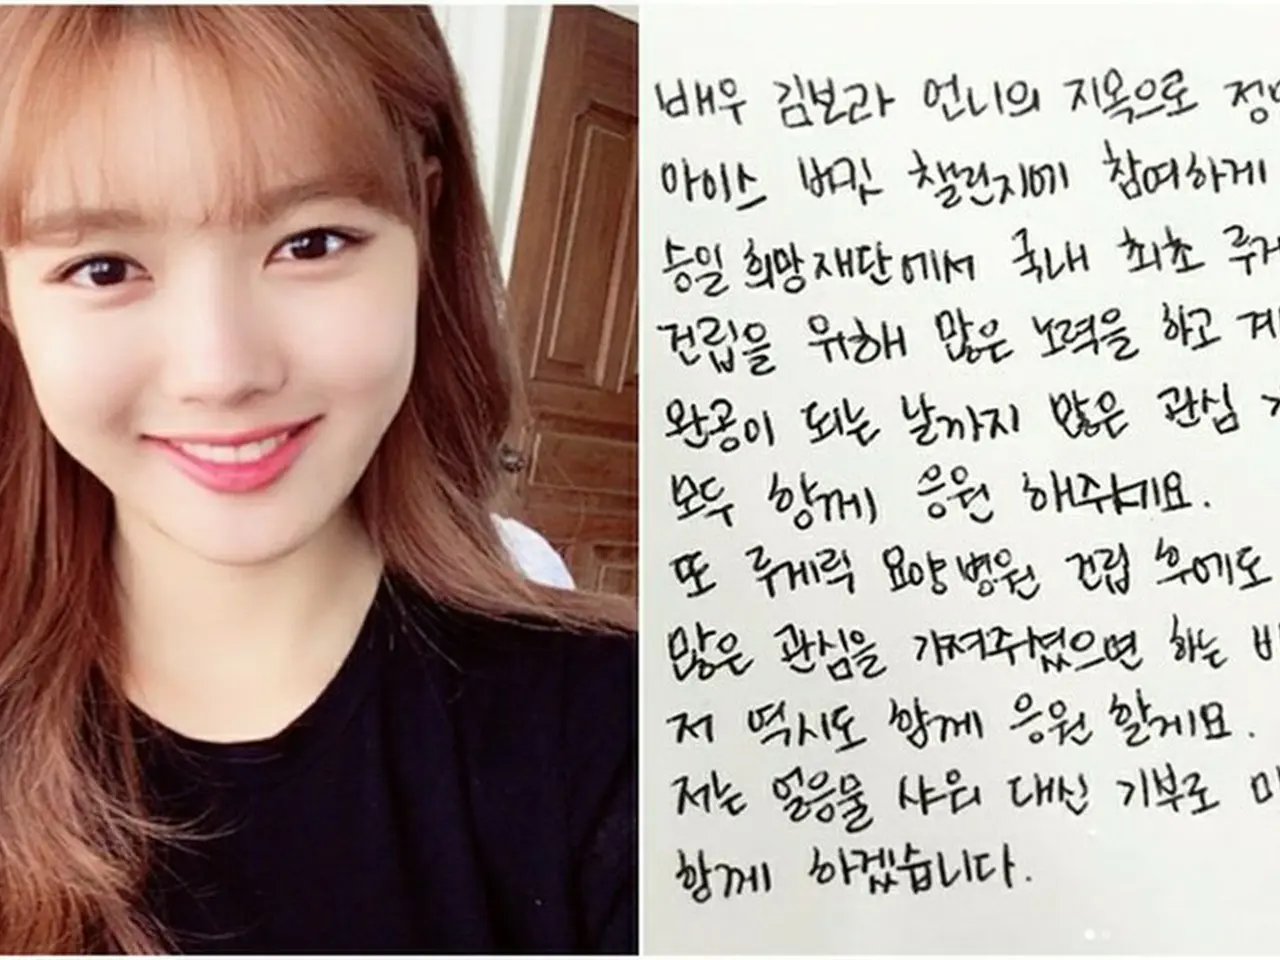 배우 김보라 언니의 지목으로
아이스 버킷 챌린지에 참여하게
승일 희망재단에서 국내 최초
건립을 위해 많은 노력을 하고
완공이 되는 날까지 많은 관심
모두 함께 응원 해주세요.
또 루게릭 요양병원 건립 후에도
많은 관심을 가져주셨으면 하는
저 역시도 함께 응원 할게요.
저는 얼음물 샤워 대신 기부로
함께 하겠습니다.